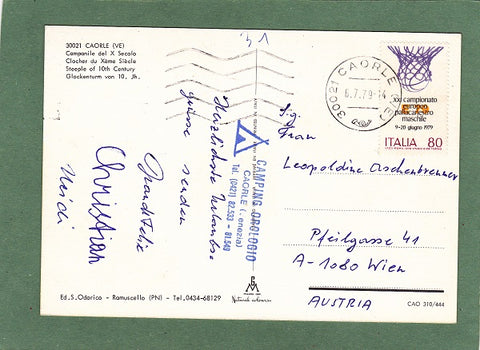 30021 CAORLE (VE)
Campanile del X Secolo
Clocher du Xème Siècle
Steeple of 10th Century
Glockenturm von 10. Jh.
Herzlichste Urlaubs-
grüsse senden
Christian
Heidi
CAMPING OROLOGIO
CAORLE (Venezia)
Tel. (0421) 82.533 - 81.540
30021 CAORLE (VE)
6.7.79-14
XXI campionato
europeo
pallacanestro
maschile
9-20 giugno 1979
ITALIA 80
Frau
Leopoldine Aschenbrenner
Pfeilgasse 41
A-1080 Wien
AUSTRIA
Ed. S. Odorico - Ramuscello (PN) - Tel. 0434-68129
CAO 310/444